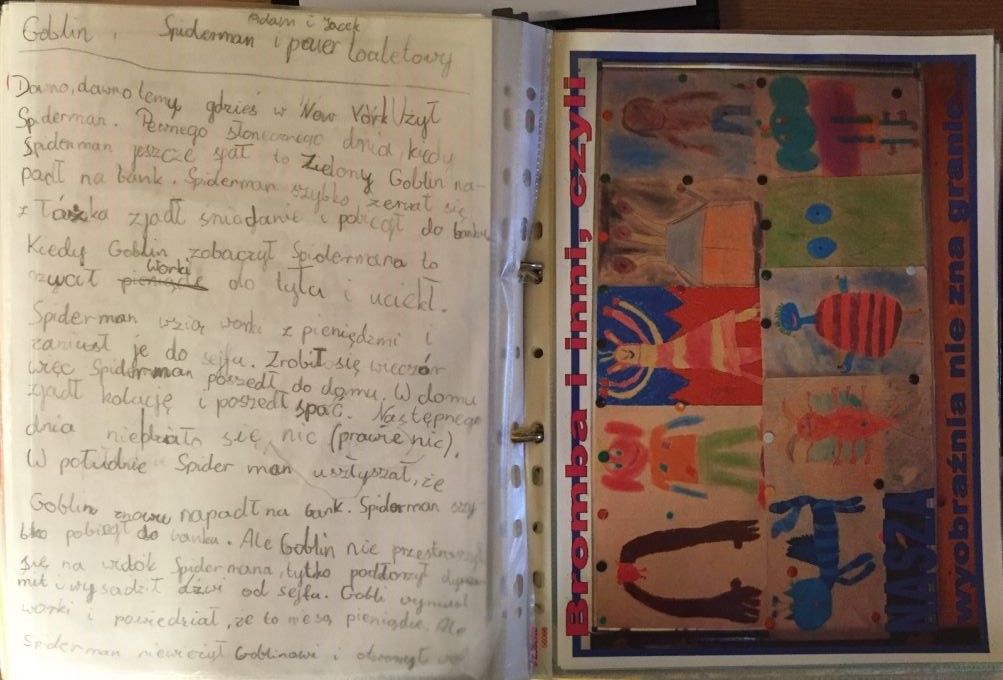 Adam i Jacek
Goblin, Spiderman i paier toaletowy
Dawno, dawno temy gdzieś w New Yórk żył
Spiderman. Pewnego słonecznego dnia, kiedy
Spiderman jeszcze spał to Zielony Goblin na-
padł na bank. Spiderman szybko zerwał się
z łóżka zjadł śniadanie i pobiegł do banku
Kiedy Goblin zobaczył Spidermana to
rzucił worki do tyłu i uciekł.
Spiderman wziął worki z pieniędzmi i
zaniusł je do sejfu. Zrobił się wieczór
więc Spiderman poszedł do domu. W domu
zjadł kolację i poszedł spać. Następnego
dnia niedziało się nic (prawie nic).
W południe Spider man usłyszał, że
Goblin znowu napadł na bank. Spiderman szy
bko pobiegł do banku. Ale Goblin nie
się na widok Spidermana, tylko podłorzył dyna
mit i wysadził dzwi od sejfu. Gobli
worki i powiedział, że to niesą pieniądze. Ale
Spiderman niewieżył Goblinowi i otworzył
Bromba i inni, czyli
NASZA
wyobraźnia nie zna granic...